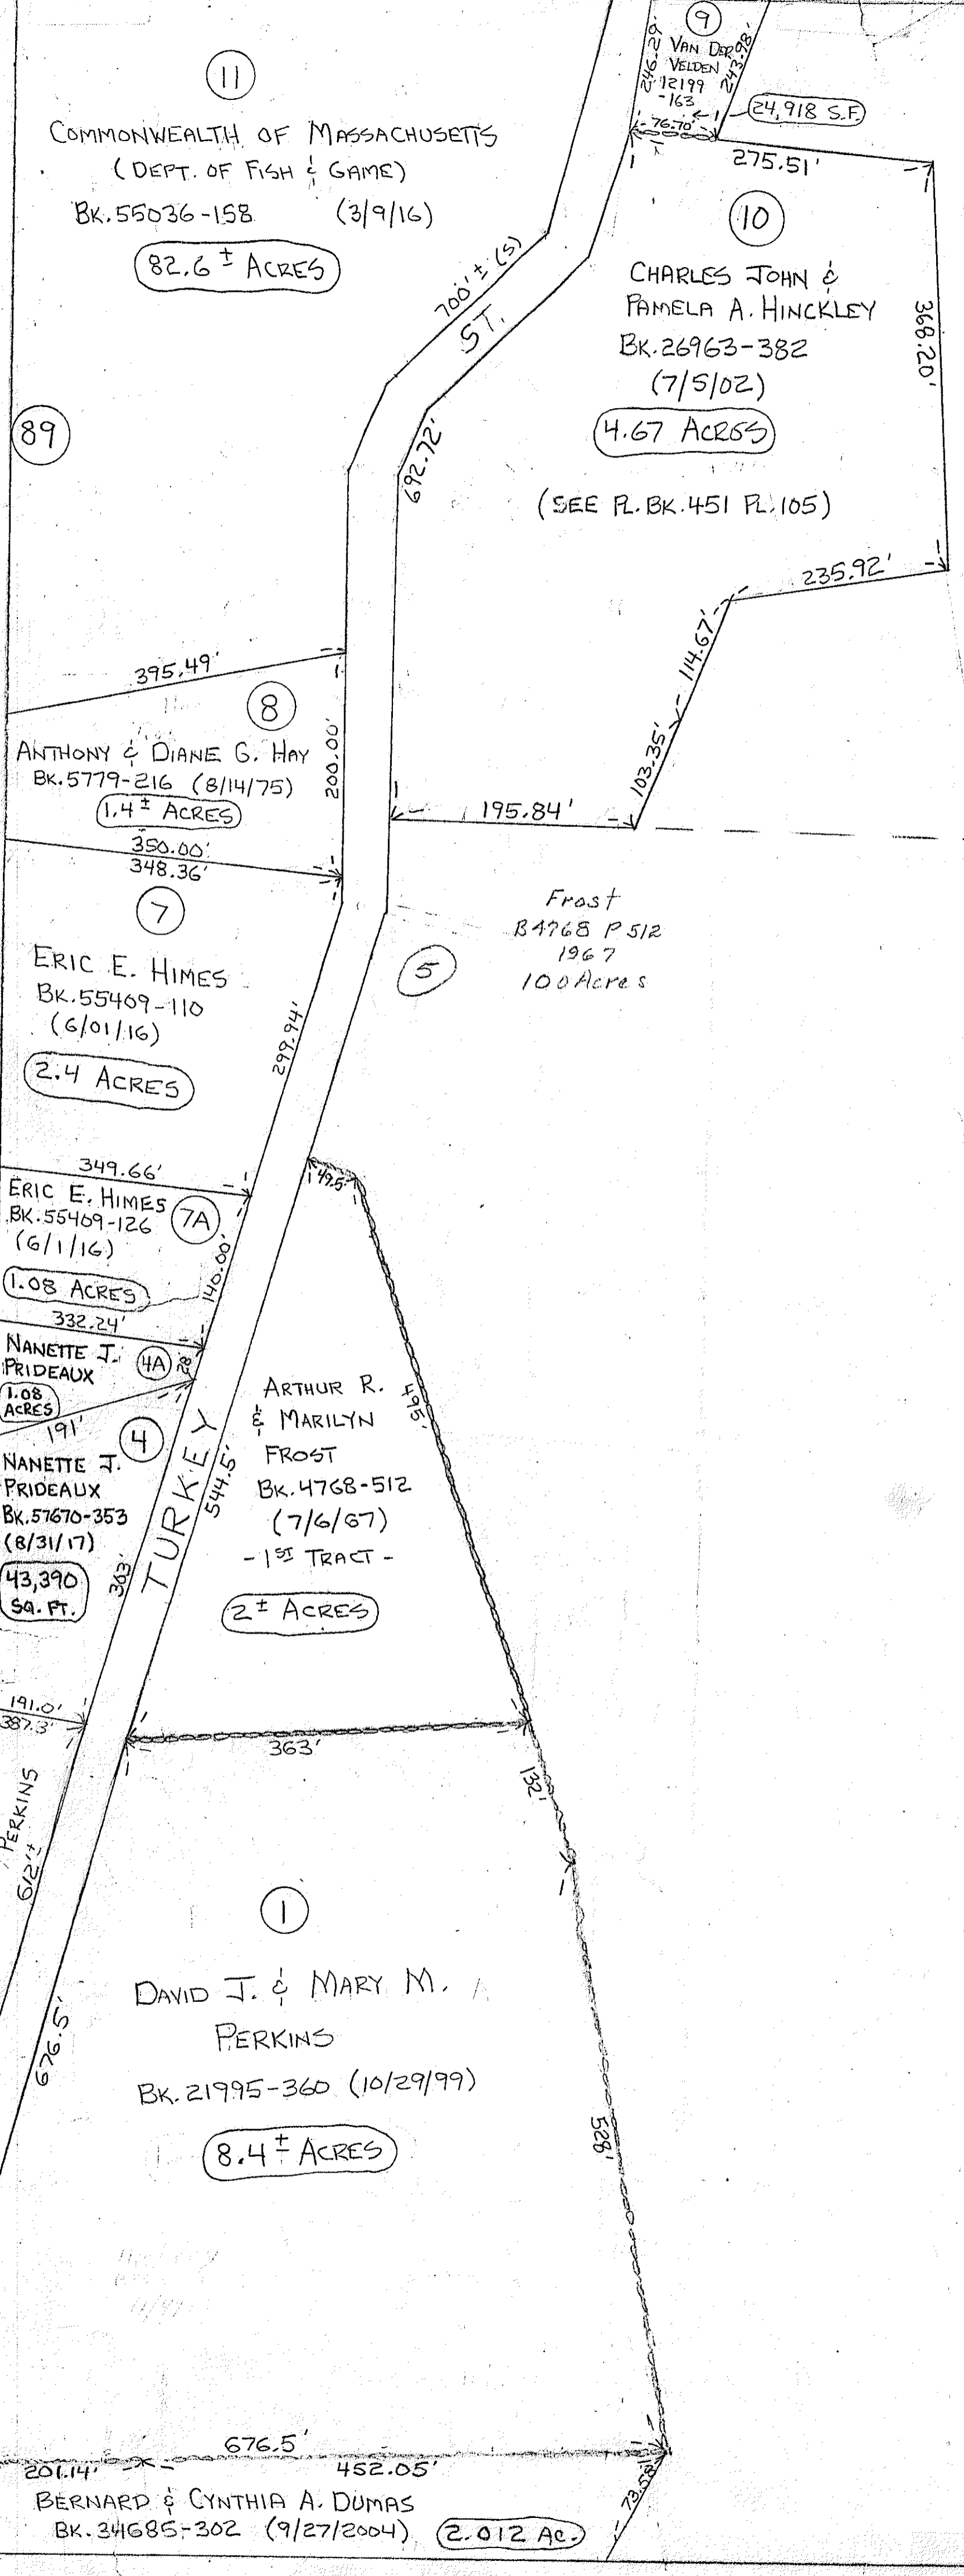 9
VAN DER
VELDEN
12199
-163
246.29'
243.98'
76.70'
24,918 S.F.
11
COMMONWEALTH OF MASSACHUSETTS
(DEPT. OF FISH & GAME)
BK.55036-158 (3/9/16)
82.6± ACRES
275.51'
10
CHARLES JOHN &
PAMELA A. HINCKLEY
BK.26963-382
(7/5/02)
4.67 ACRES
(SEE PL.BK.451 PL.105)
368.20'
700'± (S)
ST.
692.72'
89
235.92'
114.67'
103.35'
195.84'
395.49'
8
ANTHONY & DIANE G. HAY
BK.5779-216 (8/14/75)
1.4± ACRES
200.00'
350.00'
348.36'
7
ERIC E. HIMES
BK.55409-110
(6/01/16)
2.4 ACRES
299.94'
Frost
B4768 P512
1967
100 Acres
5
349.66'
ERIC E. HIMES
BK.55409-126
(6/1/16)
7A
1.08 ACRES
140.00'
49.5'
332.24'
NANETTE J.
PRIDEAUX
4A
28'
1.08
ACRES
191'
4
NANETTE J.
PRIDEAUX
BK.57670-353
(8/31/17)
43,390
SQ. FT.
303'
TURKEY
544.5'
ARTHUR R.
& MARILYN
FROST
BK.4768-512
(7/6/67)
-1ST TRACT-
2± ACRES
495'
191.0'
387.3'
363'
132'
PERKINS
612'±
1
DAVID J. & MARY M.
PERKINS
BK.21995-360 (10/29/99)
8.4± ACRES
676.5'
528'
676.5'
201.14'
452.05'
73.58'
BERNARD & CYNTHIA A. DUMAS
BK.34685-302 (9/27/2004) 2.012 AC.